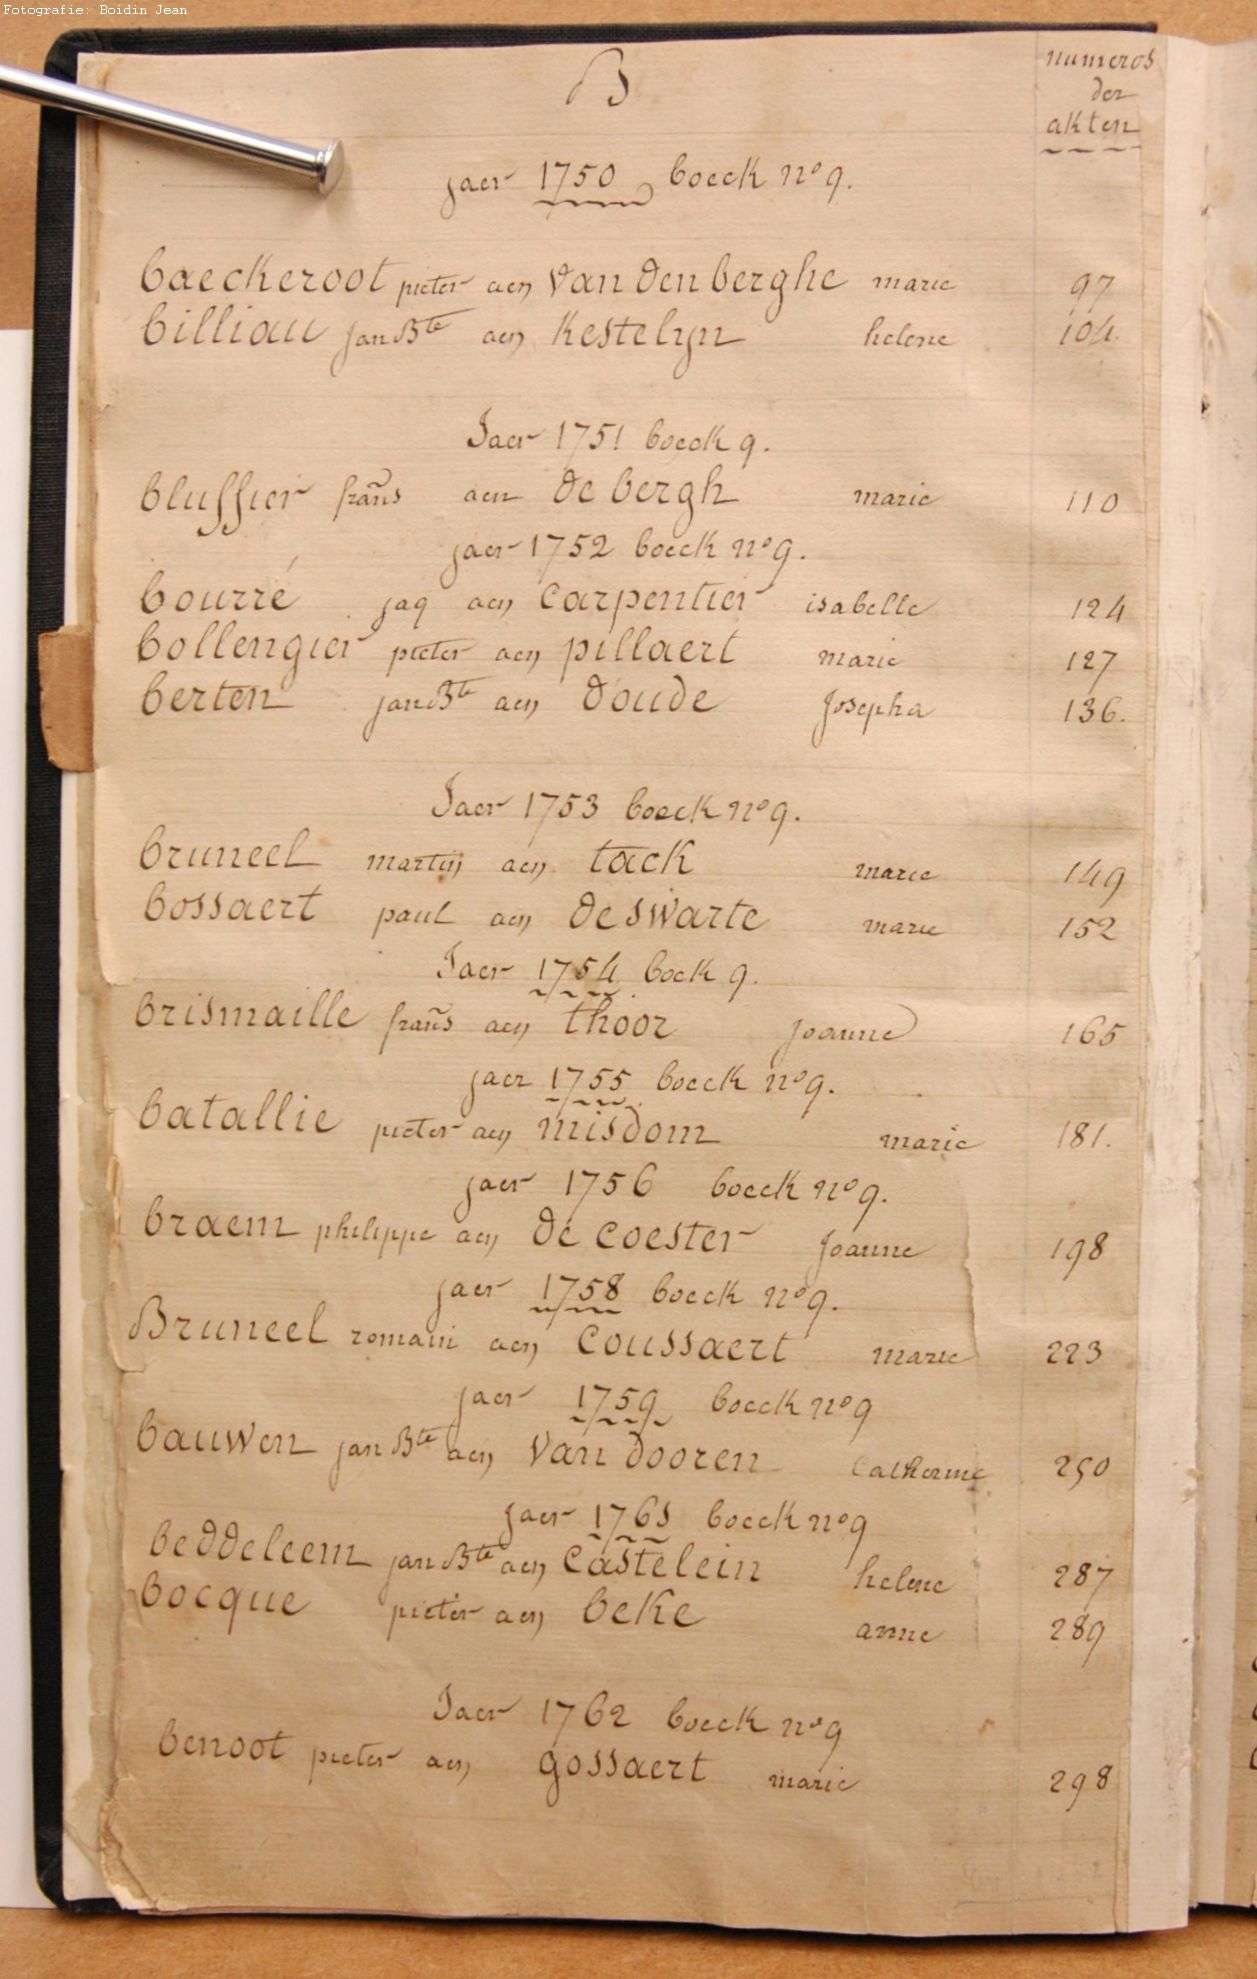 Fotografie: Boidin Jean
B
numeros
der
akten
jaer 1750 boeck n° 9.
baeckeroot pieter aen van den berghe marie 97
billiau jan Bte aen kestelyn helene 104.
Jaer 1751 boeck 9.
blussier frans aen de bergh marie 110
jaer 1752 boeck n° 9.
bourré jaq aen carpentier isabelle 124
bollengier pieter aen pillaert marie 127
berten jan Bte aen d'oude Josepha 136.
Jaer 1753 boeck n° 9.
bruneel martin aen tack marie 149
bossaert paul aen de swarte marie 152
Jaer 1754 boek 9.
brismaille frans aen thoor Joanne 165
jaer 1755 boeck n° 9.
batallie pieter aen misdom marie 181.
jaer 1756 boeck n° 9.
braem philippe aen de coester Joanne 198
jaer 1758 boeck n° 9.
Bruneel romain aen coussaert marie 223
jaer 1759 boeck n° 9
bauwen jan Bte aen van dooren Catherine 250
jaer boeck n° 9
beddeleem jan Bte aen castelein helene 287
bocque pieter aen beke anne 289
Jaer 1762 boeck n° 9
benoot pieter aen gossaert marie 298